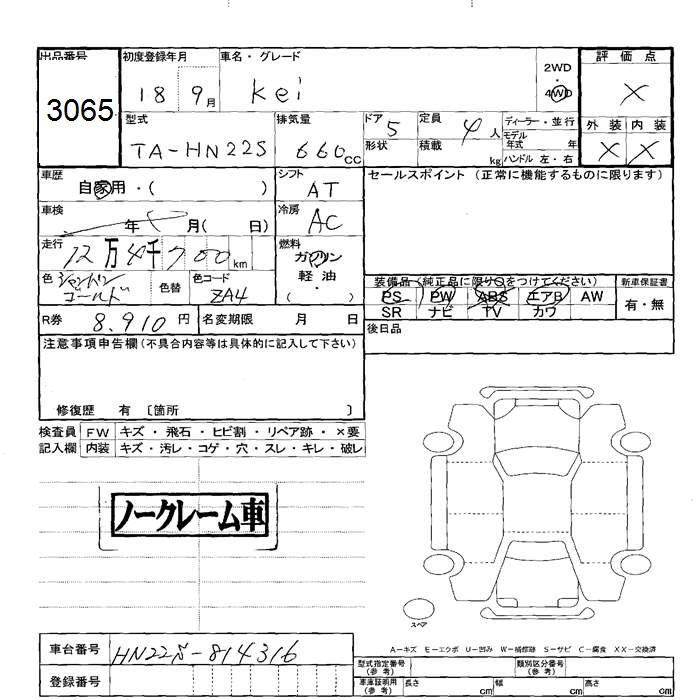 出品番号 初度登録年月 車名・グレード 2WD 評価点
3065 18 9月 Kei 4WD ×
型式 排気量 ドア 定員 ディーラー・並行 外装 内装
TA-HN22S 660cc 5 4人 モデル年式 年 × ×
形状 積載 kg ハンドル 左・右
車歴 シフト セールスポイント (正常に機能するものに限ります)
自家用・( ) AT
車検 冷房
年 月( 日) AC
走行 燃料
12万4千700km ガソリン
色 色替 色コード 軽油
シャンパンゴールド ZA4 ・( )
装備品(純正品に限り○をつけてください) 新車保証書
PS PW ABS エアB AW 有・無
SR ナビ TV カワ
R券 8.910円 名変期限 月 日 後日品
注意事項申告欄(不具合内容等は具体的に記入して下さい)
修復歴 有 〔箇所 〕
検査員 FW キズ・飛石・ヒビ割・リペア跡・×要
記入欄 内装 キズ・汚レ・コゲ・穴・スレ・キレ・破レ
ノークレーム車
スペア
A-キズ E-エクボ U-凹み W-補修跡 S-サビ C-腐食 XX-交換済
車台番号 HN22S-814316
登録番号
型式指定番号(参考) 類別区分番号(参考)
車庫証明用(参考) 長さ cm 幅 cm 高さ cm